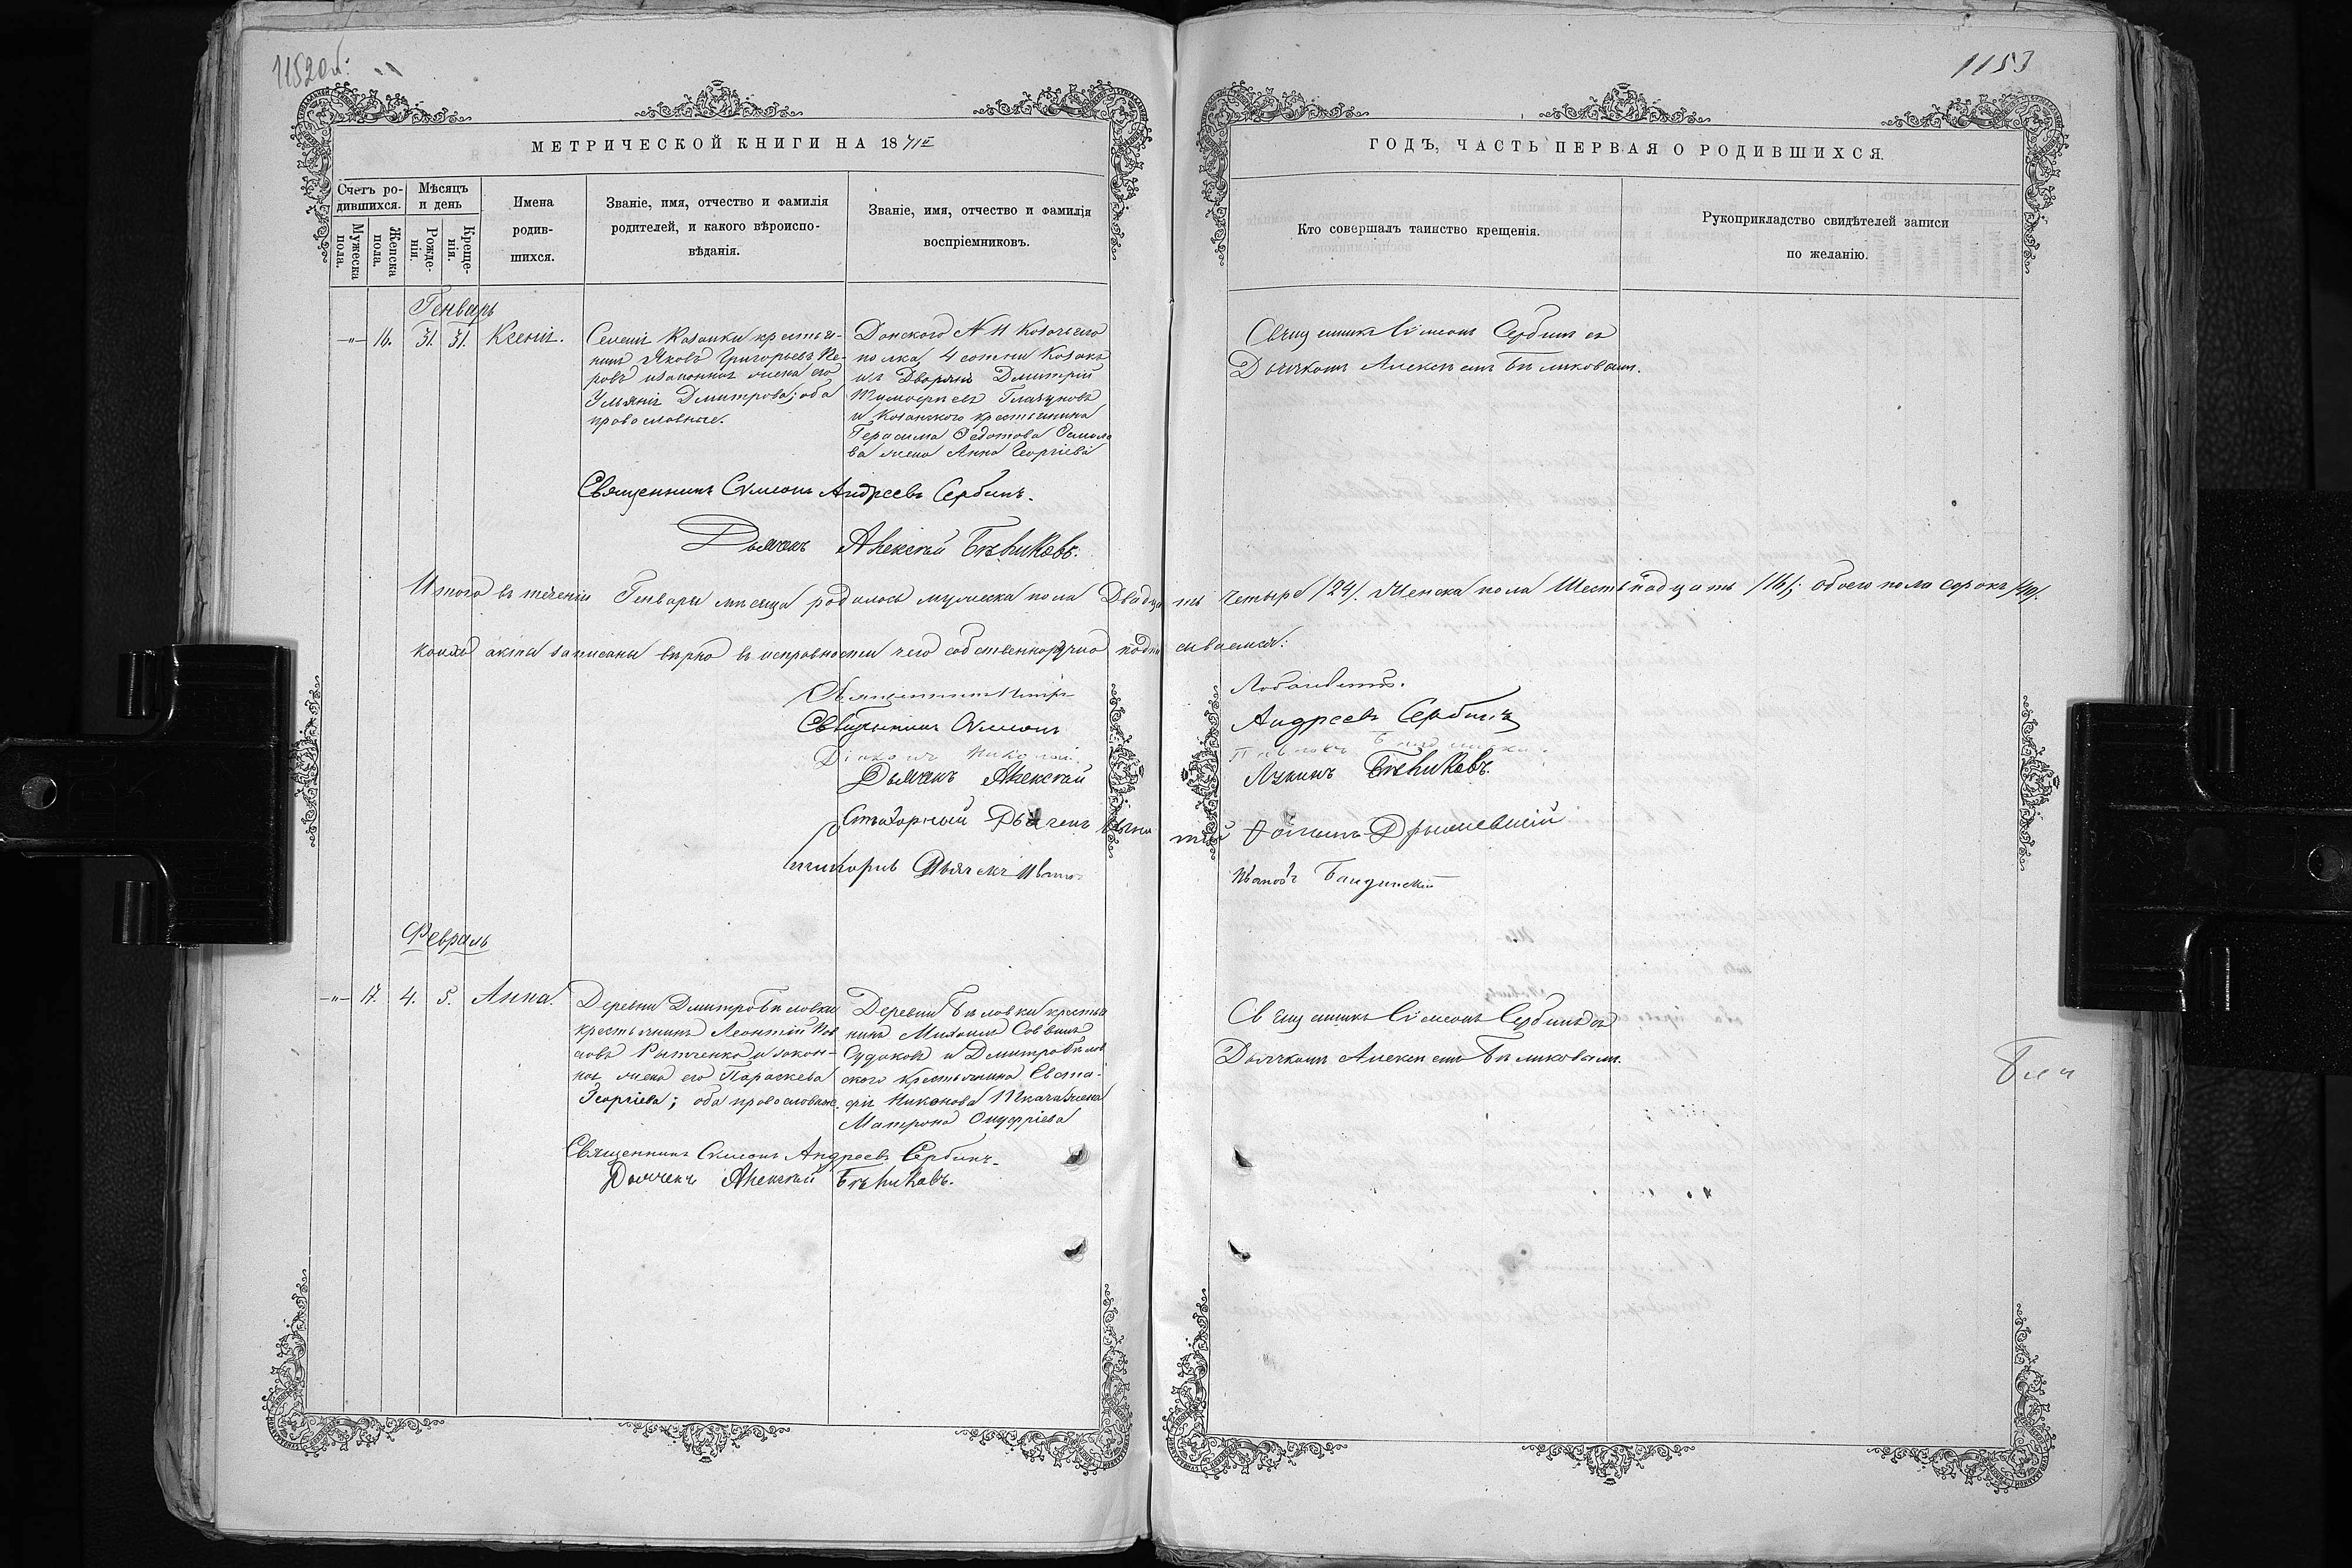 1152об.
1153
МЕТРИЧЕСКОЙ КНИГИ НА 1871й
ГОДЪ, ЧАСТЬ ПЕРВАЯ О РОДИВШИХСЯ.
Счетъ ро-
дившихся.
Мужеска
пола.
Женска
пола.
Мѣсяцъ
и день
Рожде-
нія.
Креще-
нія.
Имена
родив-
шихся.
Званіе, имя, отчество и фамилія
родителей, и какого вѣроиспо-
вѣданія.
Званіе, имя, отчество и фамилія
воспріемниковъ.
Кто совершалъ таинство крещенія.
Рукоприкладство свидѣтелей записи
по желанію.
Генварь
-"- 16. 31. 31. Ксенія.
Селенія Казанки крестья-
нинъ Яковъ Григорьевъ
и законная жена его
Ульянія Дмитрова; оба
православные.
Донскаго № 11 Козачьяго
полка 4 сотни Козакъ
изъ Дворянъ Дмитрій
Тимофеевъ Глазуновъ
и Казанскаго крестьянина
Герасима Федотова
жена Анна Георгіева
Священникъ Симеонъ Сербинъ съ
Дьячкомъ Алексѣемъ Бѣликовымъ.
Священникъ Симеонъ Андреевъ Сербинъ.
Дьячекъ Алексѣй Бѣликовъ.
Итого въ теченіи Генваря мѣсяца родилось мужеска пола Двадцать Четыре /24/. Женска пола Шестьнадцать /16/; обоего пола сорокъ /40/.
коихъ акты записаны вѣрно въ исправности чего собственноручно подписываемся:
Священникъ Петръ
Священникъ Симеонъ Андреевъ Сербинъ
Діаконъ Николай
Дьячекъ Алексѣй Лукинъ Бѣликовъ.
Дьячекъ
Дьячекъ Иванъ Ивановъ
Февраль
-"- 17. 4. 5. Анна.
Деревни Дмитробѣловки
крестьянинъ Леонтій
и закон-
ная жена его Параскева
Георгіева; оба православные.
Деревни Бѣловки крестья
нинъ Михаилъ Саввинъ
Судаковъ и Дмитробѣлов
скаго крестьянина Евста-
фія Никонова Ткача жена
Матрона Онуфріева
Священникъ Симеонъ Сербинъ съ
Дьячкомъ Алексѣемъ Бѣликовымъ.
Священникъ Симеонъ Андреевъ Сербинъ.
Дьячекъ Алексѣй Бѣликовъ.